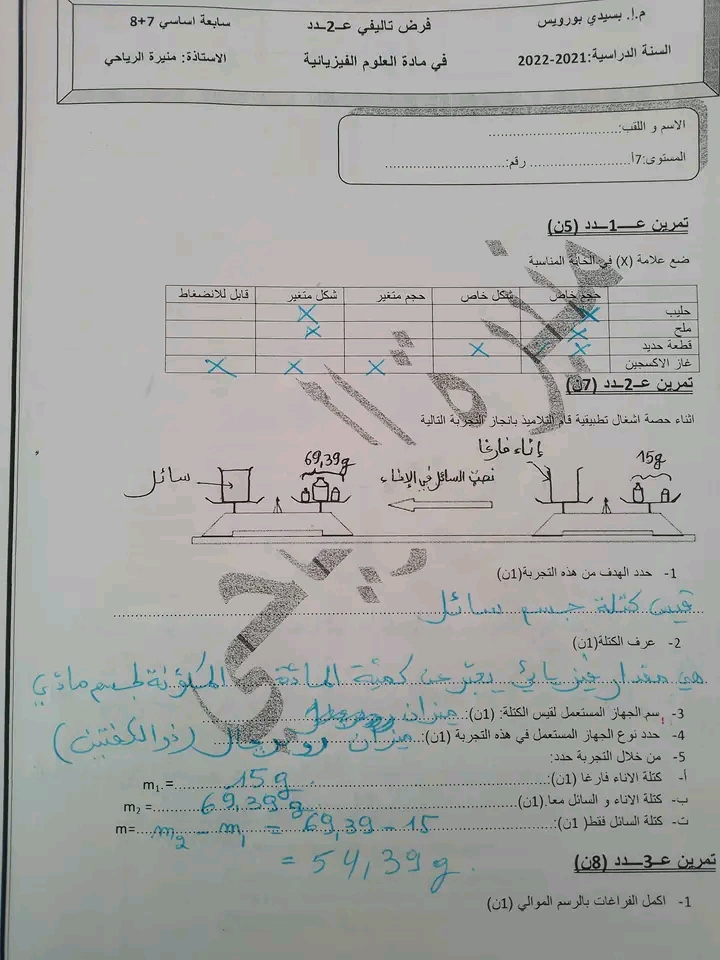 م.إ. بسيدي بورويس فرض تاليفي عــ2ــدد سابعة اساسي 7+8
السنة الدراسية:2021-2022 في مادة العلوم الفيزيائية الاستاذة: منيرة الرياحي
الاسم و اللقب:..............................
المستوى:7أ....................... رقم:...........................
تمرين عــــ1ــدد (5ن)
ضع علامة (X) في الخانة المناسبة
حجم خاص شكل خاص حجم متغير شكل متغير قابل للانضغاط
حليب X X
ملح X X
قطعة حديد X X
غاز الاكسجين X X X
تمرين عــ2ــدد (7ن)
اثناء حصة اشغال تطبيقية قام التلاميذ بانجاز التجربة التالية
إناء فارغا
15g
نصب السائل في الإناء
69,39g
سائل
1- حدد الهدف من هذه التجربة(1ن)
قيس كتلة جسم سائل
2- عرف الكتلة(1ن)
هي مقدار فيزيائي يعبر عن كمية المادة المكونة لجسم مادي
3- سم الجهاز المستعمل لقيس الكتلة: (1ن) ميزان
4- حدد نوع الجهاز المستعمل في هذه التجربة (1ن): ميزان روبرفال (ذو الكفتين)
5- من خلال التجربة حدد:
أ- كتلة الاناء فارغا (1ن): m₁= 15g
ب- كتلة الاناء و السائل معا.(1ن) m₂ = 69,39g
ت- كتلة السائل فقط( 1ن): m= m₂ - m₁ = 69,39 - 15
= 54,39g.
تمرين عــ3ــدد (8ن)
1- اكمل الفراغات بالرسم الموالي (1ن)
منيرة الرياحي